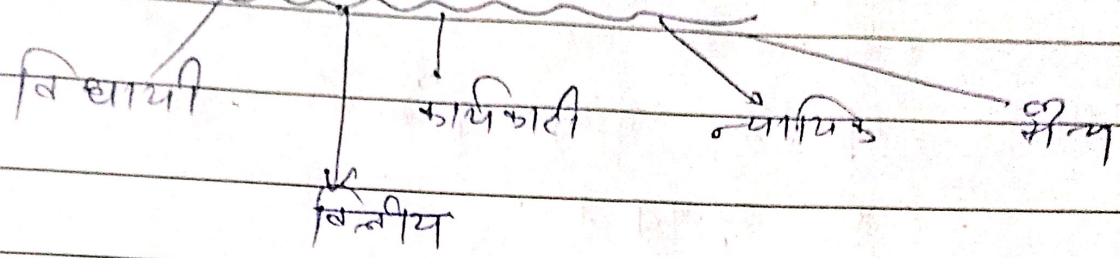 विधायी कार्यकारी न्यायिक सैन्य
वित्तीय